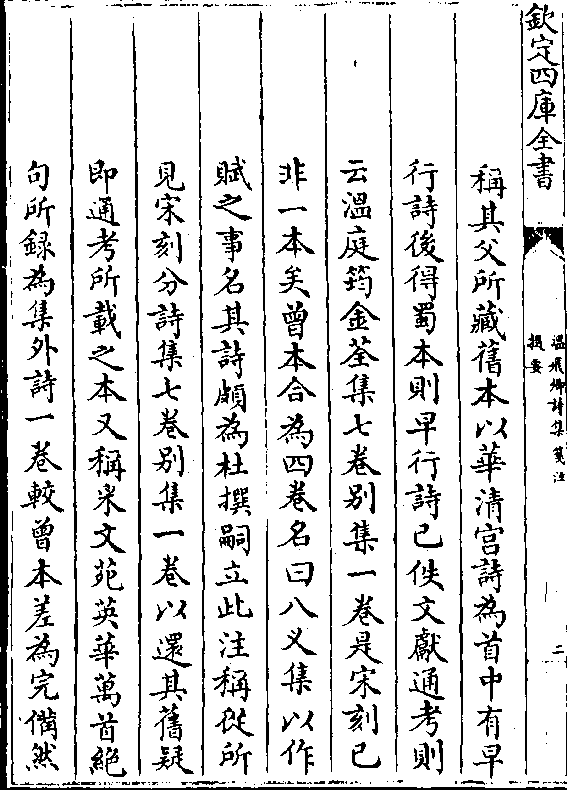 欽定四庫全書
溫飛卿詩集箋注
提要
二
稱其父所藏舊本以華清宮詩為首中有早
行詩後得蜀本則早行詩已佚文獻通考則
云溫庭筠金荃集七卷别集一卷是宋刻已
非一本矣曾本合為四卷名曰八叉集以作
賦之事名其詩頗為杜撰嗣立此注稱從所
見宋刻分詩集七卷别集一卷以還其舊疑
即通考所載之本又稱采文苑英華萬首絶
句所録為集外詩一卷較曾本差為完備然